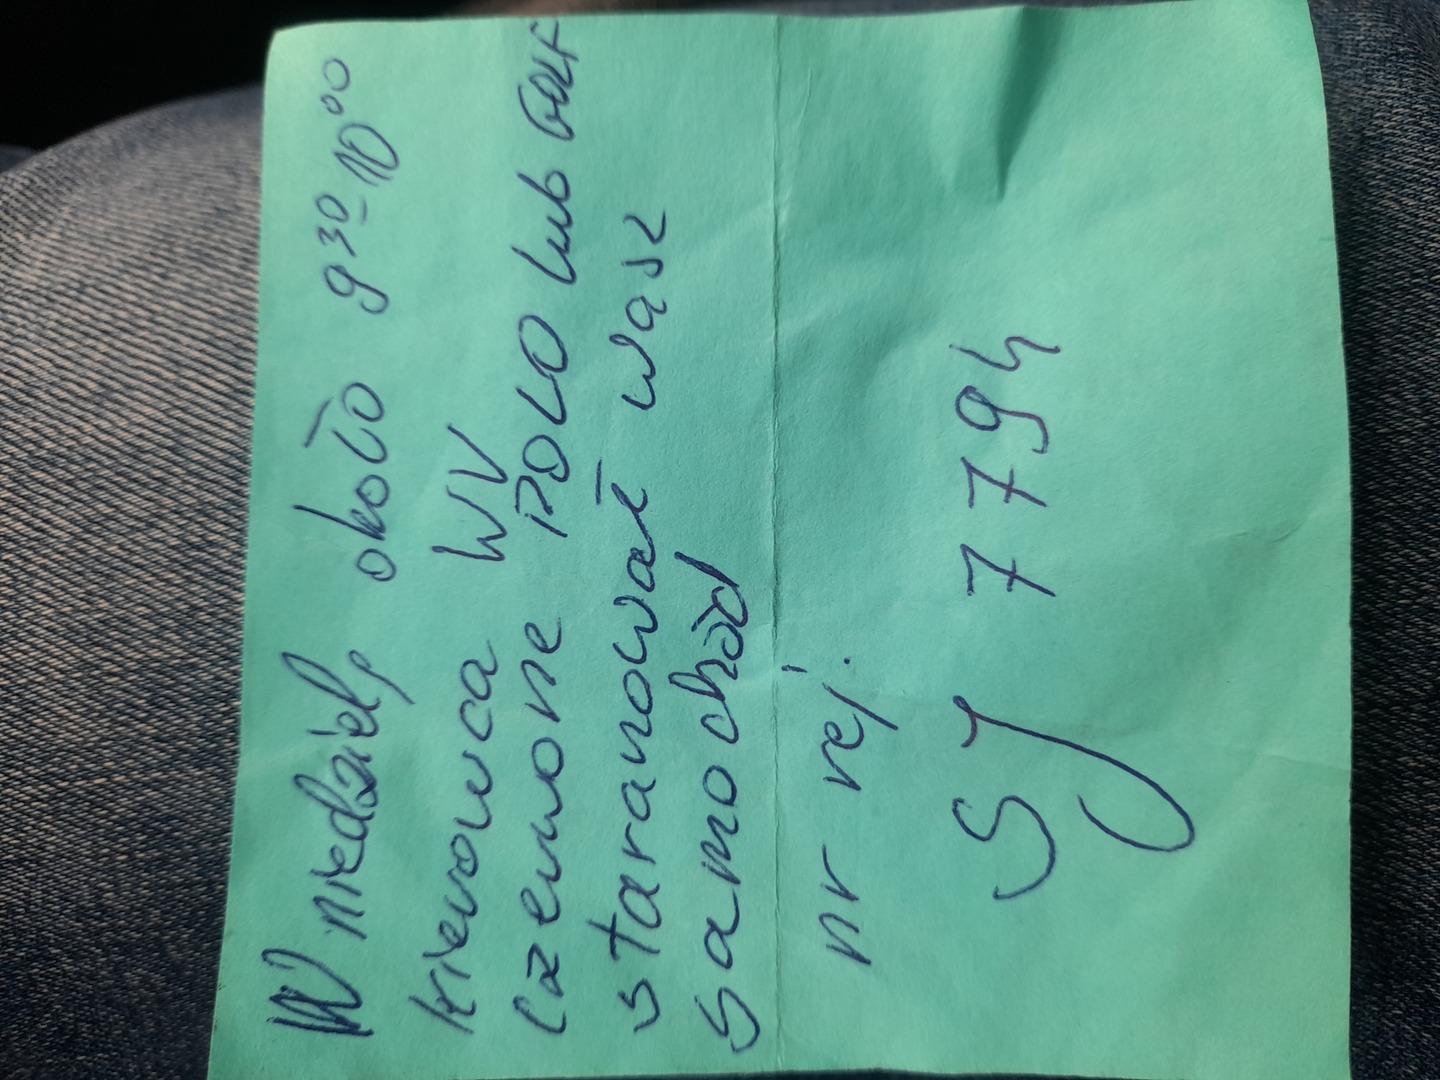 W niedzielę około 9³⁰-10⁰⁰
kierowca WV
czerwone POLO lub GOLF
staranował wasz
samochód
nr rej.
SJ 7794